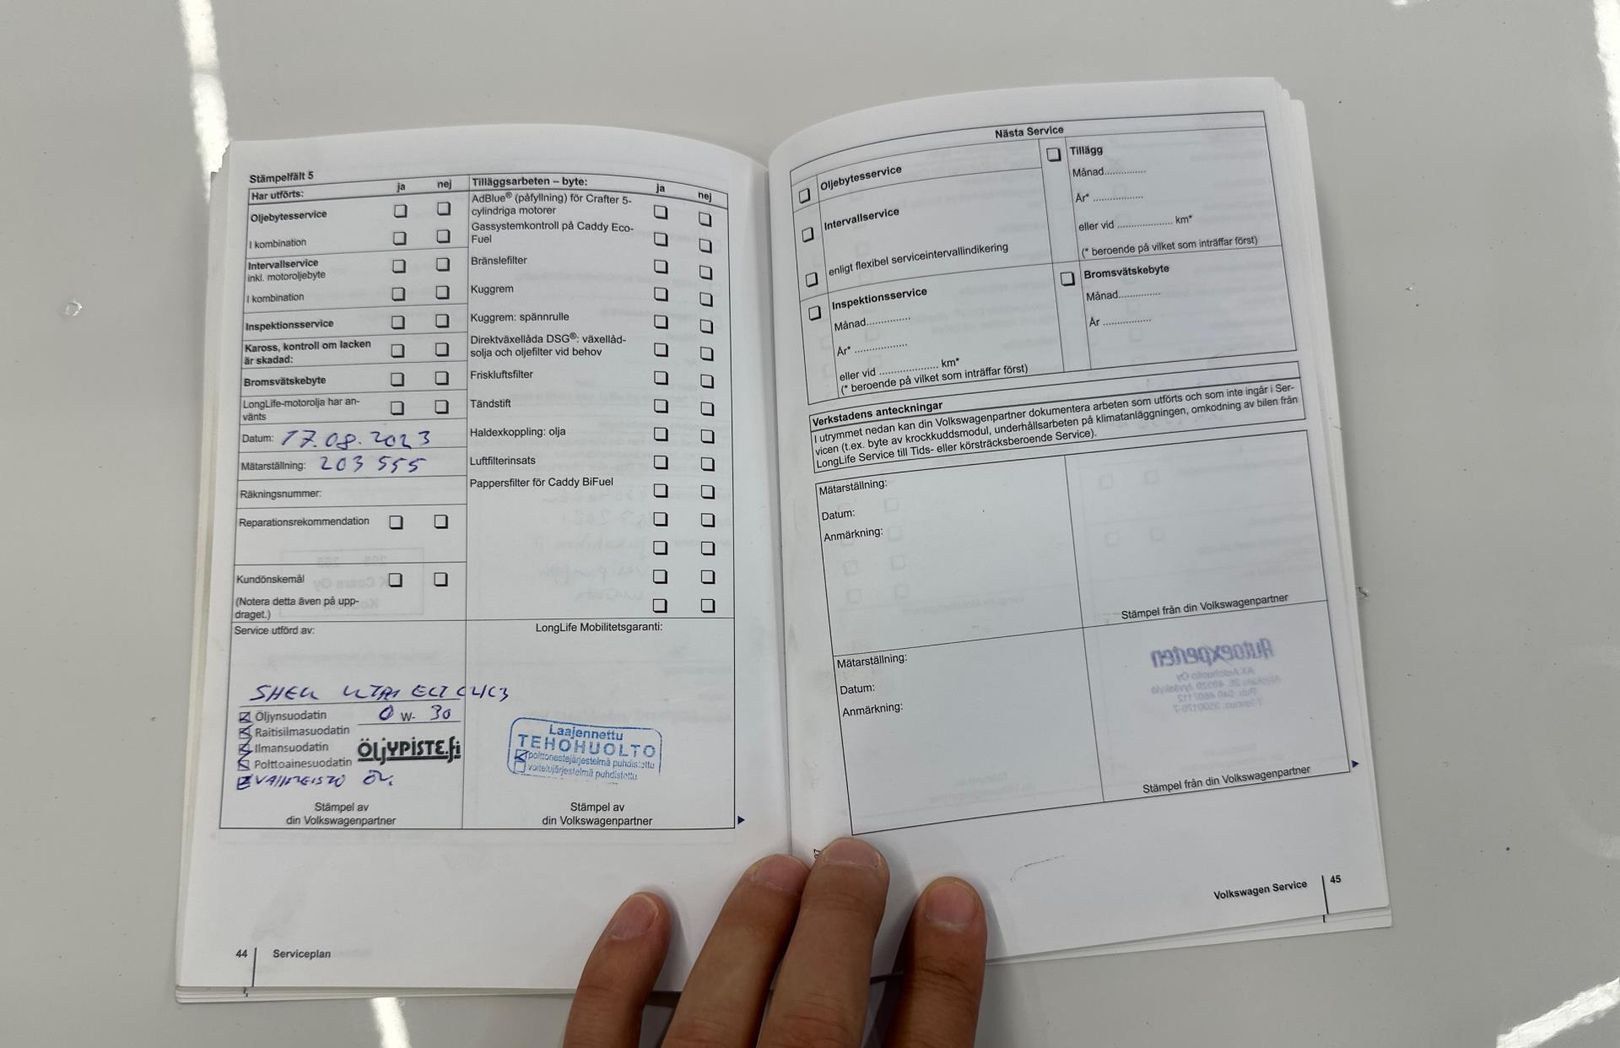 Stämpelfält 5
Har utförts:
ja
nej
Oljebytesservice
I kombination
Intervallservice
inkl. motoroljebyte
I kombination
Inspektionsservice
Kaross, kontroll om lacken
är skadad:
Bromsvätskebyte
LongLife-motorolja har an-
vänts
Datum: 17.08.2023
Mätarställning: 203 555
Räkningsnummer:
Reparationsrekommendation
Kundönskemål
(Notera detta även på upp-
draget.)
Tilläggsarbeten – byte:
ja
nej
AdBlue® (påfyllning) för Crafter 5-
cylindriga motorer
Gassystemkontroll på Caddy Eco-
Fuel
Bränslefilter
Kuggrem
Kuggrem: spännrulle
Direktväxellåda DSG®: växellåd-
solja och oljefilter vid behov
Friskluftsfilter
Tändstift
Haldexkoppling: olja
Luftfilterinsats
Pappersfilter för Caddy BiFuel
Service utförd av:
SHELL ULTRA ECT C2/C3
Öljynsuodatin 0 W- 30
Raitisilmasuodatin
Ilmansuodatin
Polttoainesuodatin
ÖLJYPISTE.fi
Stämpel av
din Volkswagenpartner
LongLife Mobilitetsgaranti:
Laajennettu
TEHOHUOLTO
polttonestejärjestelmä puhdistettu
voitelujärjestelmä puhdistettu
Stämpel av
din Volkswagenpartner
44 Serviceplan
Nästa Service
Oljebytesservice
Intervallservice
enligt flexibel serviceintervallindikering
Inspektionsservice
Månad...............
År* ..................
eller vid .................... km*
(* beroende på vilket som inträffar först)
Tillägg
Månad..............
År* .................
eller vid ................... km*
(* beroende på vilket som inträffar först)
Bromsvätskebyte
Månad..............
År ................
Verkstadens anteckningar
I utrymmet nedan kan din Volkswagenpartner dokumentera arbeten som utförts och som inte ingår i Ser-
vicen (t.ex. byte av krockkuddsmodul, underhållsarbeten på klimatanläggningen, omkodning av bilen från
LongLife Service till Tids- eller körsträcksberoende Service).
Mätarställning:
Datum:
Anmärkning:
Stämpel från din Volkswagenpartner
Mätarställning:
Datum:
Anmärkning:
Stämpel från din Volkswagenpartner
Volkswagen Service 45